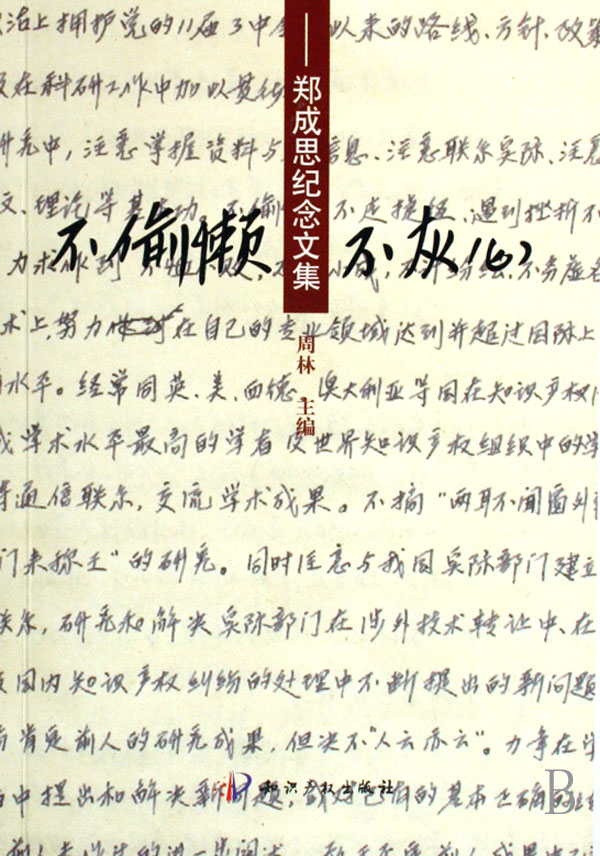 治上拥护党的11届3中全 以来的路线、方针、政策
在科研工作中加以贯彻
研究中，注意掌握资料与 信息、注意联系实际、注意
文、理论等基本功。不偷懒 不走捷径，遇到挫折不
力求作到
术上，努力 在自己的专业领域达到并超过国际上
水平。经常同英、美、西德、澳大利亚等国在知识产权
学术水平最高的学者及世界知识产权组织中的学
等通信联系，交流学术成果。不搞“两耳不闻窗外
门来称王”的研究。同时注意与我国实际部门建立
联系，研究和解决实际部门在涉外技术转让中、在
国内知识产权纠纷的处理中不断提出的新问题
肯定前人的研究成果，但决不“人云亦云”。力争在
中提出和解决新问题，或对已有的基本正确的
前人未作过的进一步阐述
——郑成思纪念文集
不偷懒 不灰心
周林 主编
知识产权出版社
B